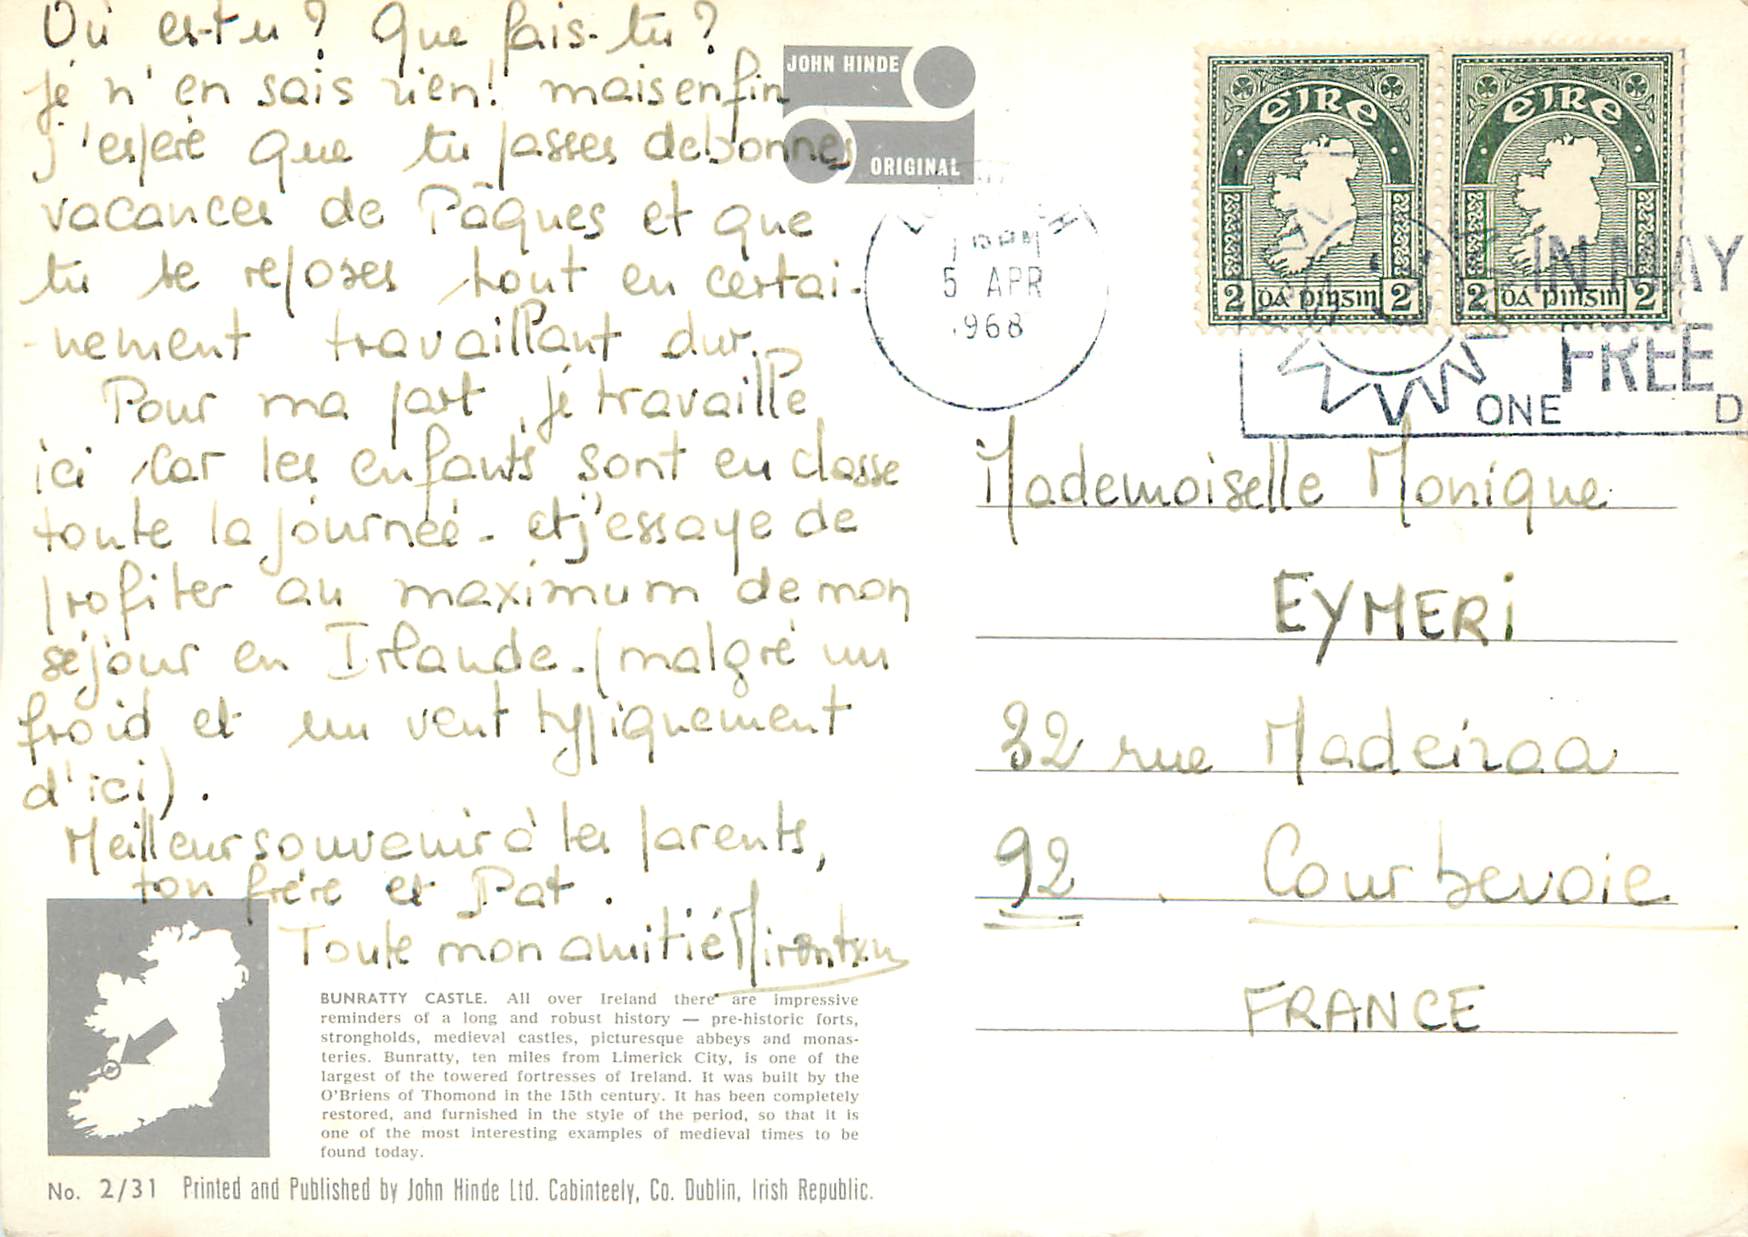 Où es-tu ? Que fais-tu ?
Je n'en sais rien! mais enfin
j'espère que tu passes de bonnes
vacances de Pâques et que
tu te reposes tout en certai-
-nement travaillant dur.
Pour ma part, je travaille
ici car les enfants sont en classe
toute la journée - et j'essaye de
profiter au maximum de mon
séjour en Irlande. (malgré un
froid et un vent typiquement
d'ici).
Meilleur souvenir à tes parents,
ton frère et Pat.
Toute mon amitié
BUNRATTY CASTLE. All over Ireland there are impressive
reminders of a long and robust history — pre-historic forts,
strongholds, medieval castles, picturesque abbeys and monas-
teries. Bunratty, ten miles from Limerick City, is one of the
largest of the towered fortresses of Ireland. It was built by the
O'Briens of Thomond in the 15th century. It has been completely
restored, and furnished in the style of the period, so that it is
one of the most interesting examples of medieval times to be
found today.
No. 2/31 Printed and Published by John Hinde Ltd. Cabinteely, Co. Dublin, Irish Republic.
JOHN HINDE
ORIGINAL
5 APR
1968
EIRE
2 DÁ PINGIN 2
EIRE
2 DÁ PINGIN 2
IN MAY
FREE
ONE
Mademoiselle Monique
EYMERI
32 rue Madeiraa
92 Courbevoie
FRANCE